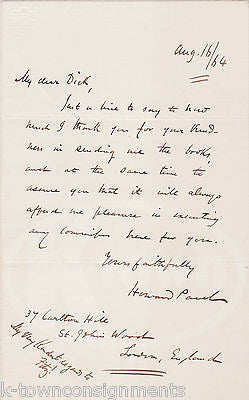 Aug. 16/64
My dear Dick,
Just a line to say to how
much I thank you for your kind-
ness in sending me the books,
and at the same time to
assure you that it will always
afford me pleasure in executing
any commission here for you.
Yours faithfully
Howard Paul
37 Carlton Hill
St. John's Wood
London, England
My kindest regards to
k-townconsignments
© k-townconsignments.com